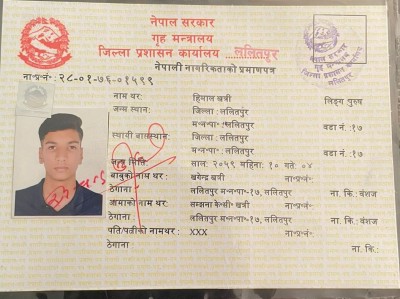 नेपाल सरकार
गृह मन्त्रालय
जिल्ला प्रशासन कार्यालय ललितपुर
नेपाली नागरिकताको प्रमाणपत्र
ना॰प्र॰नं॰: २८-०१-७६-०१५९९
नाम थर: हिमाल खत्री लिङ्ग: पुरुष
जन्म स्थान: जिल्ला : ललितपुर
म॰न॰पा॰: ललितपुर वडा नं.:१७
स्थायी बासस्थान: जिल्ला : ललितपुर
म॰न॰पा॰: ललितपुर वडा नं.:१७
जन्म मिति: साल: २०५९ महिना: १० गते: ०४
बाबुको नाम थर: खगेन्द्र खत्री ना॰प्र॰नं॰:
ठेगाना: ललितपुर मनपा-१७, ललितपुर ना. कि.: वंशज
आमाको नाम थर: सम्झना के॰सी॰ खत्री ना॰प्र॰नं॰:
ठेगाना: ललितपुर मनपा-१७, ललितपुर ना. कि.: वंशज
पति/पत्नीको नामथर: XXX ना॰प्र॰नं॰:
ठेगाना ना. कि.: